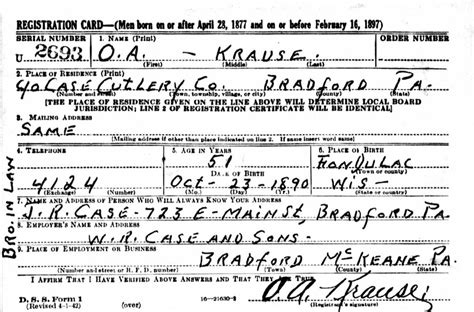 REGISTRATION CARD—(Men born on or after April 28, 1877 and on or before February 16, 1897)
SERIAL NUMBER 1. NAME (Print) ORDER NUMBER
U 2693 O.A. - KRAUSE.
(First) (Middle) (Last)
2. PLACE OF RESIDENCE (Print)
% CASE CUTLERY CO. BRADFORD PA.
(Number and street) (Town, township, village, or city) (County) (State)
[THE PLACE OF RESIDENCE GIVEN ON THE LINE ABOVE WILL DETERMINE LOCAL BOARD
JURISDICTION; LINE 2 OF REGISTRATION CERTIFICATE WILL BE IDENTICAL]
3. MAILING ADDRESS
SAME
[Mailing address if other than place indicated on line 2. If same insert word same]
4. TELEPHONE 5. AGE IN YEARS 6. PLACE OF BIRTH
51 FONDULAC
DATE OF BIRTH (Town or county)
4124 OCT-23-1890 WIS-
(Exchange) (Number) (Mo.) (Day) (Yr.) (State or country)
7. NAME AND ADDRESS OF PERSON WHO WILL ALWAYS KNOW YOUR ADDRESS
BRO. IN LAW
J.R. CASE-723 E-MAIN ST, BRADFORD. PA.
8. EMPLOYER'S NAME AND ADDRESS
W.R. CASE AND SONS-
9. PLACE OF EMPLOYMENT OR BUSINESS
BRADFORD McKEANE PA.
(Number and street or R. F. D. number) (Town) (County) (State)
I AFFIRM THAT I HAVE VERIFIED ABOVE ANSWERS AND THAT THEY ARE TRUE.
D. S. S. Form 1
(Revised 4-1-42) (over) 16—21630-2 O.A. Krause
(Registrant's signature)